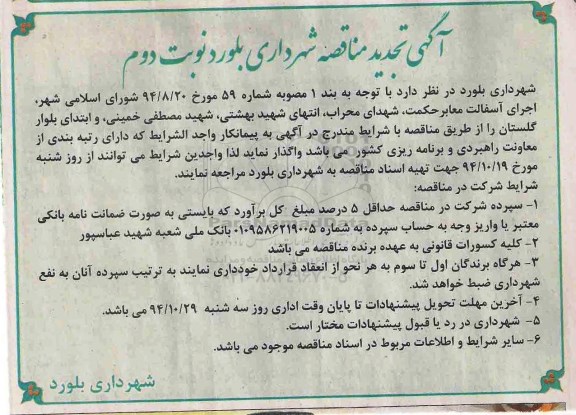 آگهی تجدید مناقصه شهرداری بلورد نوبت دوم
شهرداری بلورد در نظر دارد با توجه به بند ۱ مصوبه شماره ۵۹ مورخ ۹۴/۸/۲۰ شورای اسلامی شهر،
اجرای آسفالت معابرحکمت، شهدای محراب، انتهای شهید بهشتی، شهید مصطفی خمینی، و ابتدای بلوار
گلستان را از طریق مناقصه با شرایط مندرج در آگهی به پیمانکار واجد الشرایط که دارای رتبه بندی از
معاونت راهبردی و برنامه ریزی کشور می باشد واگذار نماید لذا واجدین شرایط می توانند از روز شنبه
مورخ ۹۴/۱۰/۱۹ جهت تهیه اسناد مناقصه به شهرداری بلورد مراجعه نمایند.
شرایط شرکت در مناقصه:
۱- سپرده شرکت در مناقصه حداقل ۵ درصد مبلغ کل برآورد که بایستی به صورت ضمانت نامه بانکی
معتبر یا واریز وجه به حساب سپرده به شماره ۰۱۰۹۵۸۶۲۱۹۰۰۵ بانک ملی شعبه شهید عباسپور
۲- کلیه کسورات قانونی به عهده برنده مناقصه می باشد
۳- هرگاه برندگان اول تا سوم به هر نحو از انعقاد قرارداد خودداری نمایند به ترتیب سپرده آنان به نفع
شهرداری ضبط خواهد شد.
۴- آخرین مهلت تحویل پیشنهادات تا پایان وقت اداری روز سه شنبه ۹۴/۱۰/۲۹ می باشد.
۵- شهرداری در رد یا قبول پیشنهادات مختار است.
۶- سایر شرایط و اطلاعات مربوط در اسناد مناقصه موجود می باشد.
شهرداری بلورد